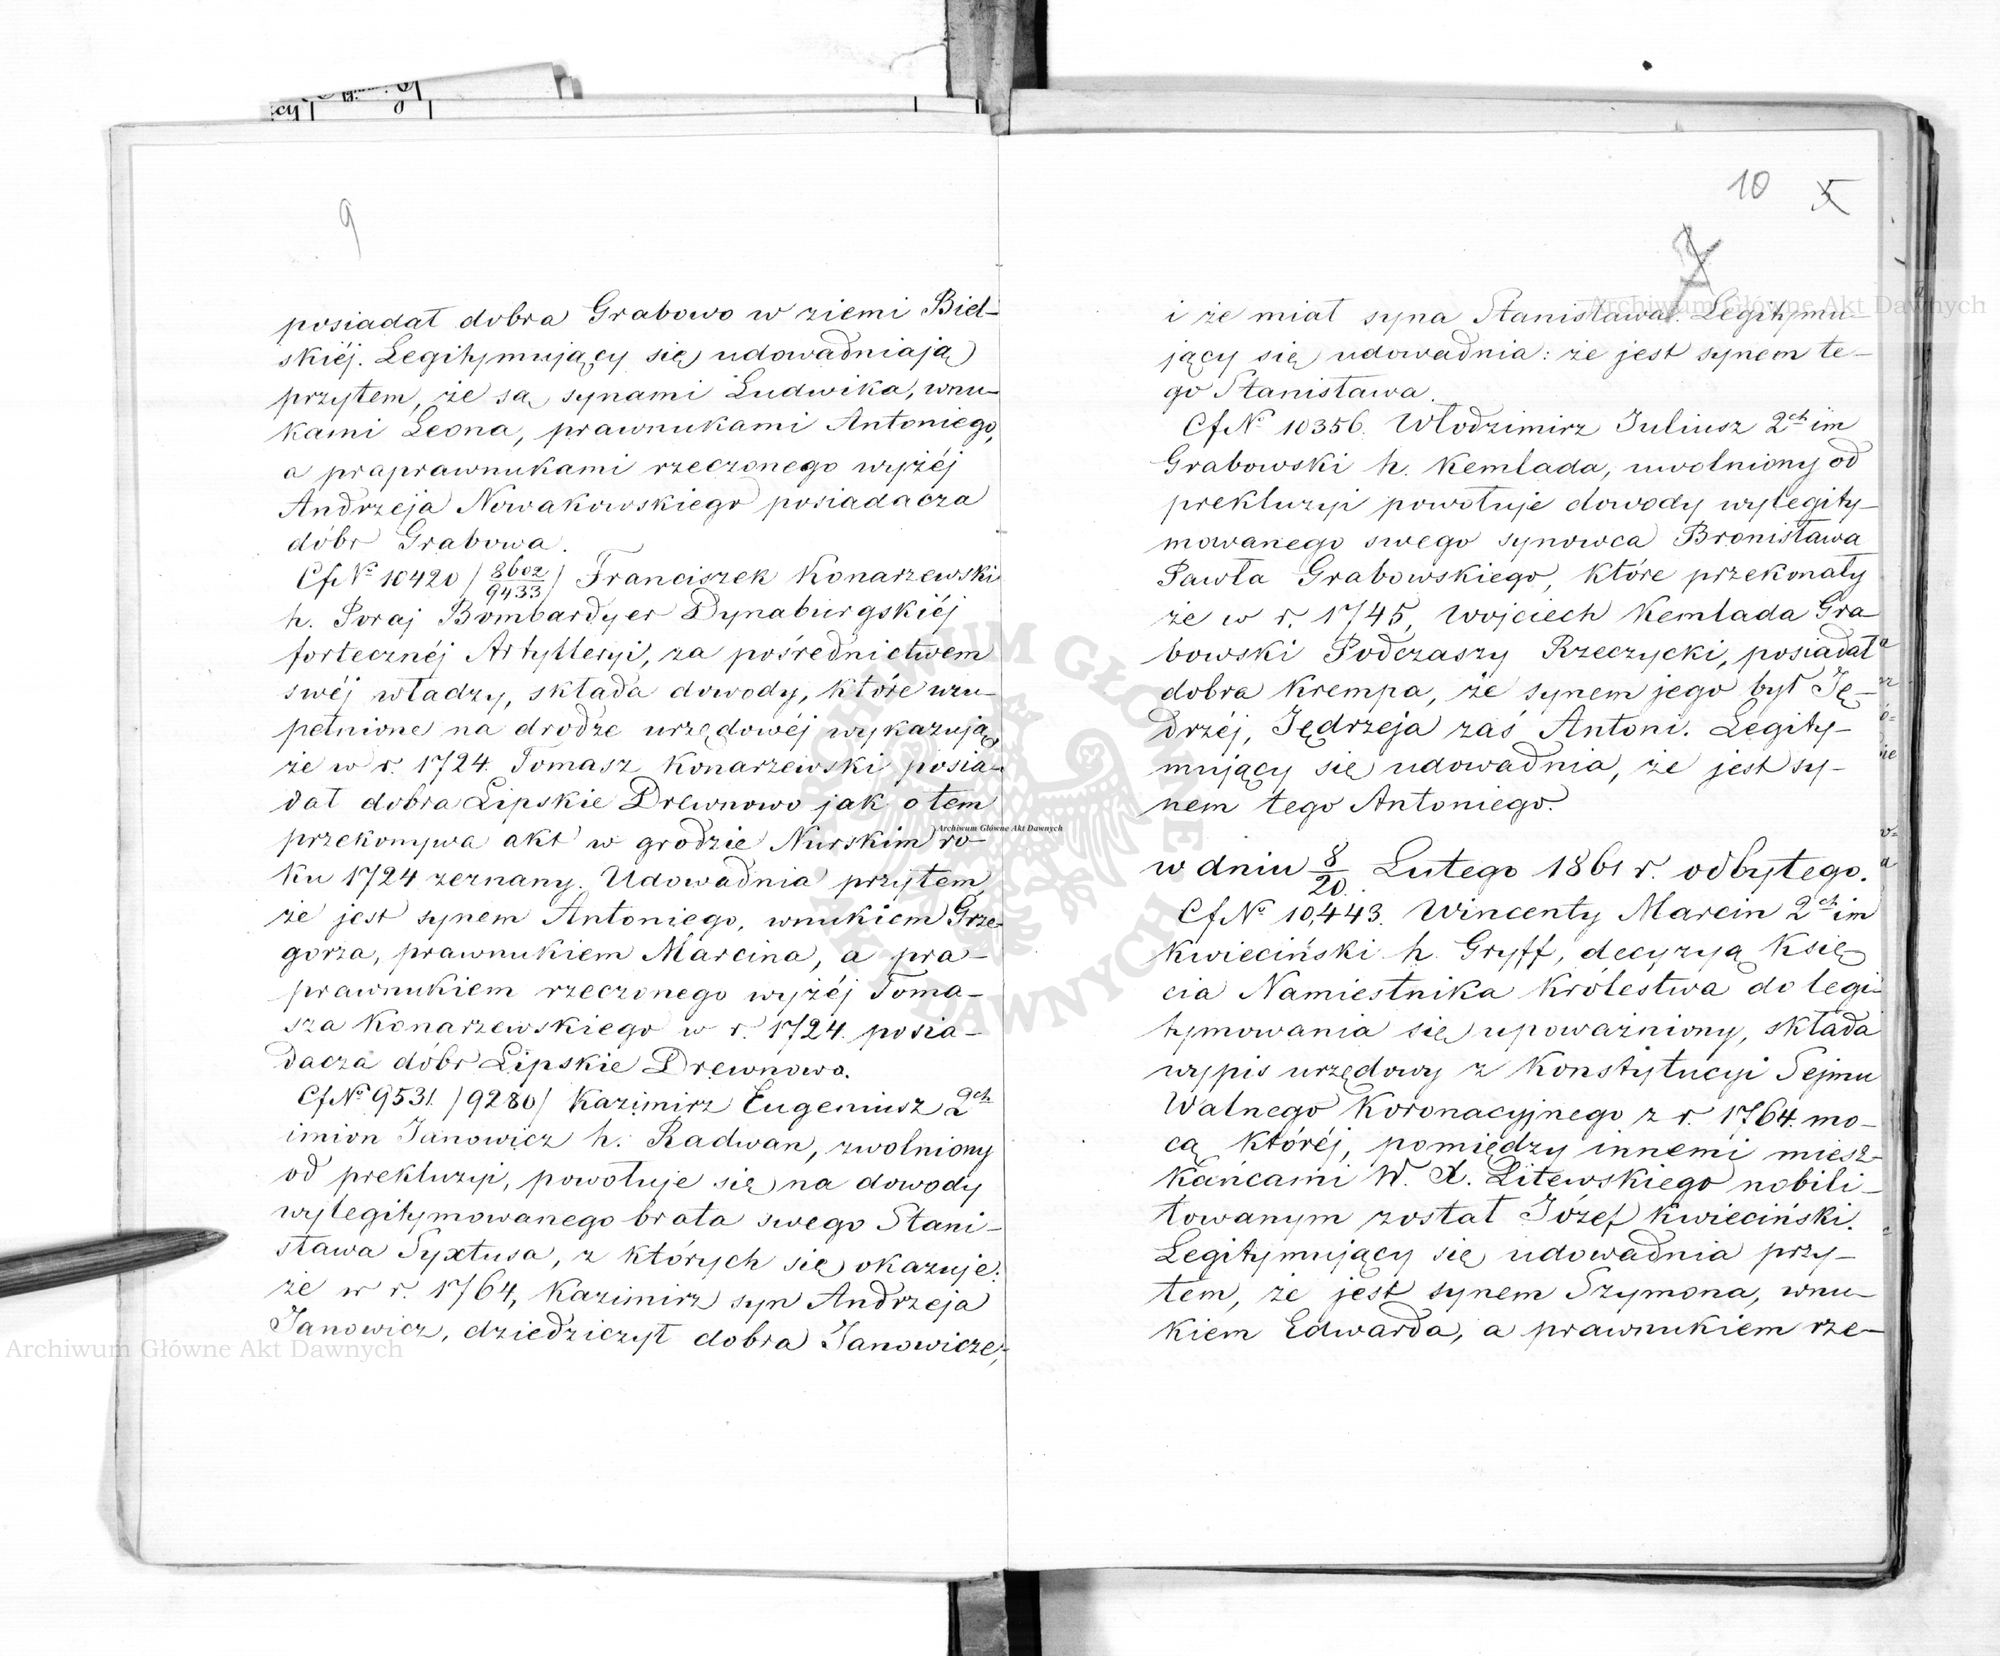 9
posiadał dobra Grabowo w ziemi Biel-
skiéj. Legitymujący się udowadniają
przytem, że są synami Ludwika, wnu-
kami Leona, prawnukami Antoniego,
a praprawnukami rzeczonego wyżéj
Andrzeja Nowakowskiego posiadacza
dóbr Grabowa.
Cf № 10420 / 8602/9433 / Franciszek Konarzewski
h. Poraj Bombardyer Dynaburgskiéj
fortecznéj Artylleryi, za pośrednictwem
swéj władzy, składa dowody, które uzu-
pełnione na drodze urzędowéj wykazują,
że w r. 1724. Tomasz Konarzewski posia-
dał dobra Lipskie Drewnowo jak o tem
przekonywa akt w grodzie Nurskim ro-
ku 1724 zeznany. Udowadnia przytem,
że jest synem Antoniego, wnukiem Grze-
gorza, prawnukiem Marcina, a pra-
prawnukiem rzeczonego wyżéj Toma-
sza Konarzewskiego w r. 1724. posia-
dacza dóbr Lipskie Drewnowo.
Cf № 9531. /9280/ Kazimirz Eugeniusz 2ch
imion Janowicz h. Radwan, zwolniony
od prekluzyi, powołuje się na dowody
wylegitymowanego brata swego Stani-
sława Syxtusa, z których się okazuje:
że w r. 1764, Kazimirz syn Andrzeja
Janowicz, dziedziczył dobra Janowicze,
10 5
i że miał syna Stanisława. Legitymu-
jący się udowadnia: że jest synem te-
go Stanisława.
Cf № 10356. Włodzimirz Juliusz 2ch im
Grabowski h. Kemlada, uwolniony od
prekluzyi powołuje dowody wylegity-
mowanego swego synowca Bronisława
Pawła Grabowskiego, które przekonały
że w r. 1745, Wojciech Kemlada Gra-
bowski Podczaszy Rzeczycki, posiadał
dobra Krempa, że synem jego był Ję-
drzéj, Jędrzeja zaś Antoni. Legity-
mujący się udowadnia, że jest sy-
nem tego Antoniego.
w dniu 8/20. Lutego 1861 r. odbytego.
Cf № 10,443. Wincenty Marcin 2ch im
Kwieciński h. Gryff, decyzyą Księ-
cia Namiestnika Królestwa do legi-
tymowania się upoważniony, składa
wypis urzędowy z Konstytucyi Sejmu
Walnego Koronacyjnego z r. 1764. mo-
cą któréj, pomiędzy innemi miesz-
kańcami W. X. Litewskiego nobili-
towanym został Józef Kwieciński.
Legitymujący się udowadnia przy-
tem, że jest synem Szymona, wnu-
kiem Edwarda, a prawnukiem rze-
Archiwum Główne Akt Dawnych
Archiwum Główne Akt Dawnych
Archiwum Główne Akt Dawnych
ARCHIWUM GŁÓWNE AKT DAWNYCH